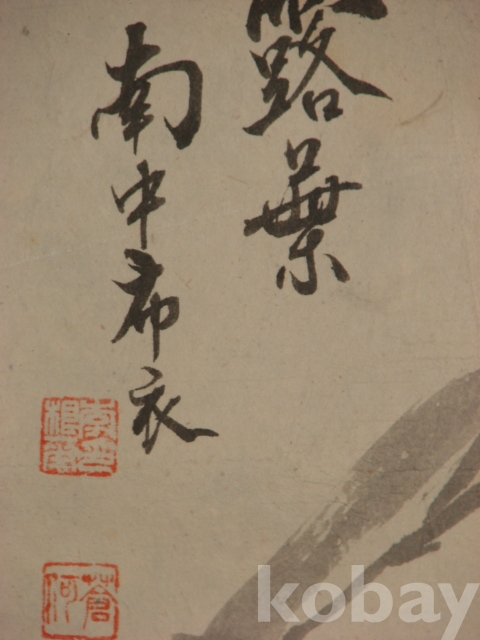 露葉
南中布衣
蒼河
kobay